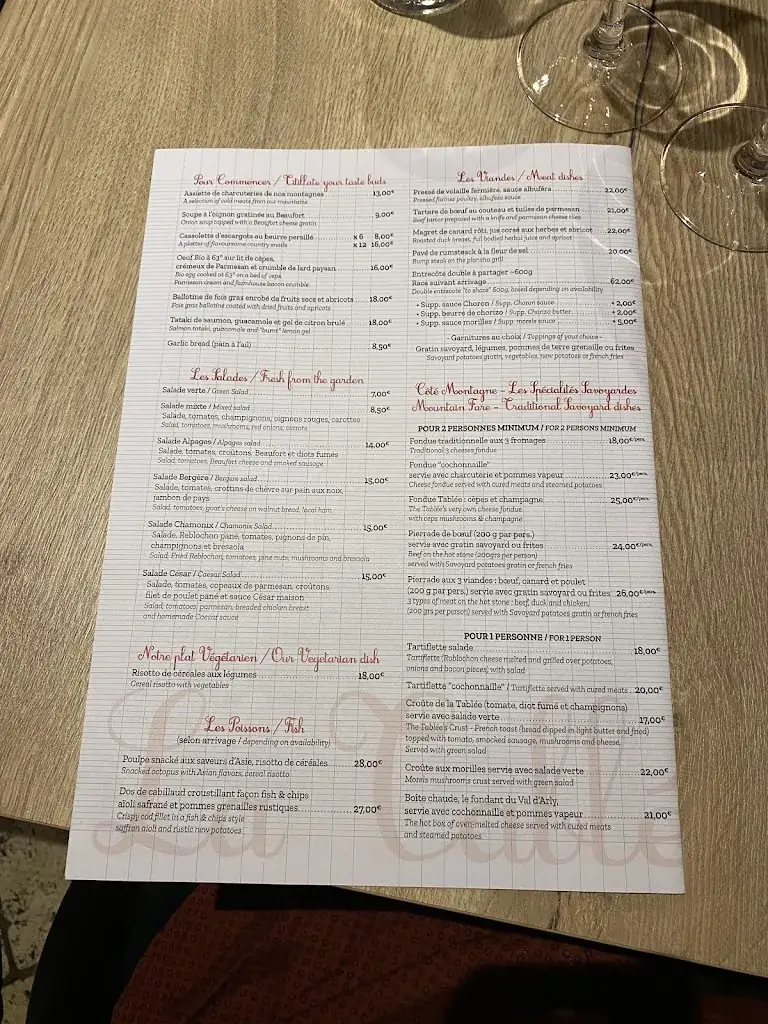 Pour Commencer / Titillate your taste buds
Assiette de charcuteries de nos montagnes 13,00€
A selection of cold meats from our mountains
Soupe à l'oignon gratinée au Beaufort 9,00€
Onion soup topped with a Beaufort cheese gratin
Cassolette d'escargots au beurre persillé x 6 8,00€
A platter of flavoursome country snails x 12 16,00€
Oeuf Bio à 63° sur lit de cèpes,
crémeux de Parmesan et crumble de lard paysan 16,00€
Bio egg cooked at 63° on a bed of ceps,
Parmesan cream and farmhouse bacon crumble
Ballotine de foie gras enrobé de fruits secs et abricots 18,00€
Foie gras ballotine coated with dried fruits and apricots
Tataki de saumon, guacamole et gel de citron brulé 18,00€
Salmon tataki, guacamole and "burnt" lemon gel
Garlic bread (pain à l'ail) 8,50€
Les Salades / Fresh from the garden
Salade verte / Green Salad 7,00€
Salade mixte / Mixed salad 8,50€
Salade, tomates, champignons, oignons rouges, carottes
Salad, tomatoes, mushrooms, red onions, carrots
Salade Alpages / Alpages salad 14,00€
Salade, tomates, croûtons, Beaufort et diots fumés
Salad, tomatoes, Beaufort cheese and smoked sausage
Salade Bergère / Bergere salad 15,00€
Salade, tomates, crottins de chèvre sur pain aux noix,
jambon de pays
Salad, tomatoes, goat's cheese on walnut bread, local ham
Salade Chamonix / Chamonix Salad 15,00€
Salade, Reblochon pané, tomates, pignons de pin,
champignons et bresaola
Salad, Fried Reblochon, tomatoes, pine nuts, mushrooms and bresaola
Salade César / Caesar Salad 15,00€
Salade, tomates, copeaux de parmesan, croûtons,
filet de poulet pané et sauce César maison
Salad, tomatoes, parmesan, breaded chicken breast
and homemade Caesar sauce
Notre plat Végétarien / Our Vegetarian dish
Risotto de céréales aux légumes 18,00€
Cereal risotto with vegetables
Les Poissons / Fish
(selon arrivage / depending on availability)
Poulpe snacké aux saveurs d'Asie, risotto de céréales 28,00€
Snacked octopus with Asian flavors, cereal risotto
Dos de cabillaud croustillant façon fish & chips
aïoli safrané et pommes grenailles rustiques 27,00€
Crispy cod fillet in a fish & chips style
saffron aioli and rustic new potatoes
Les Viandes / Meat dishes
Pressé de volaille fermière, sauce albuféra 22,00€
Pressed farmer poultry, albufera sauce
Tartare de bœuf au couteau et tuiles de parmesan 21,00€
Beef tartar prepared with a knife and parmesan cheese tiles
Magret de canard rôti, jus corsé aux herbes et abricot 22,00€
Roasted duck breast, full bodied herbal juice and apricot
Pavé de rumsteack à la fleur de sel 20,00€
Rump steak on the plancha grill
Entrecôte double à partager ~600g
Race suivant arrivage 62,00€
Double entrecote "to share" 600g, breed depending on availability
• Supp. sauce Choron / Supp. Choron sauce + 2,00€
• Supp. beurre de chorizo / Supp. Chorizo butter + 2,00€
• Supp. sauce morilles / Supp. morels sauce + 5,00€
- Garnitures au choix / Toppings of your choice -
Gratin savoyard, légumes, pommes de terre grenaille ou frites
Savoyard potatoes gratin, vegetables, new potatoes or french fries
Côté Montagne - Les Spécialités Savoyardes
Mountain Fare - Traditional Savoyard dishes
POUR 2 PERSONNES MINIMUM / FOR 2 PERSONS MINIMUM
Fondue traditionnelle aux 3 fromages 18,00€/pers.
Traditional 3 cheeses fondue
Fondue "cochonnaille"
servie avec charcuterie et pommes vapeur 23,00€/pers.
Cheese fondue served with cured meats and steamed potatoes
Fondue Tablée : cèpes et champagne 25,00€/pers.
The Tablée's very own cheese fondue
with ceps mushrooms & champagne
Pierrade de bœuf (200 g par pers.)
servie avec gratin savoyard ou frites 24,00€/pers.
Beef on the hot stone (200grs per person)
served with Savoyard potatoes gratin or french fries
Pierrade aux 3 viandes : bœuf, canard et poulet
(200 g par pers.) servie avec gratin savoyard ou frites 26,00€/pers.
3 types of meat on the hot stone : beef, duck and chicken,
(200 grs per person) served with Savoyard potatoes gratin or french fries
POUR 1 PERSONNE / FOR 1 PERSON
Tartiflette salade 18,00€
Tartiflette (Reblochon cheese melted and grilled over potatoes,
onions and bacon pieces), with salad
Tartiflette "cochonnaille" / Tartiflette served with cured meats 20,00€
Croûte de la Tablée (tomate, diot fumé et champignons)
servie avec salade verte 17,00€
The Tablée's Crust - French toast (bread dipped in light butter and fried)
topped with tomato, smocked sausage, mushrooms and cheese.
Served with green salad
Croûte aux morilles servie avec salade verte 22,00€
Morels mushrooms crust served with green salad
Boîte chaude, le fondant du Val d'Arly,
servie avec cochonnaille et pommes vapeur 21,00€
The hot box of oven-melted cheese served with cured meats
and steamed potatoes